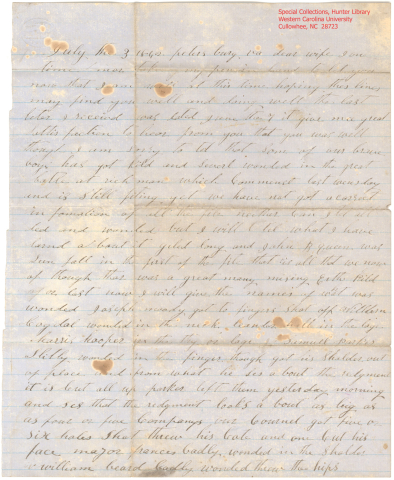 Special Collections, Hunter Library
Western Carolina University
Cullowhee, NC 28723
July the 3 1862 peters burg va dear wife I one
time more take my pen in hand to let you
now that I am well at this time hoping this lines
may find you well and doing well the last
leter I received was dated June it give me great
satisfaction to hear from you that you was well
though I am sorry to tel that some of our brave
boys has got kild and wounded in the great
battle at rich man which Commenst last wensday
and is still fiting yet we have not got a correct
information of all the fite neither Can I tel all
kild and wounded but I will tel what I have
about
seen fall in the first of the fite that is all that we now
of though thar was a great many mising Ether kild
or lost now I will give the names of what was
wonded Joseph moody got to fingers shot off William
wonded in the neck in the leg
hooper in the thy or legs
wonded in the finger though got his sholder out
of place and from what he ses a bout the redgment
it is Cut all up parker left them yesterday morning
and sed that the redgment looks a bout as big as
as four or five Companys our Cournel got five or
six holes Shot threw his Cote and one Cut his
face major frances Cadly wonded in the sholder
William beard badly wonded threw the hips